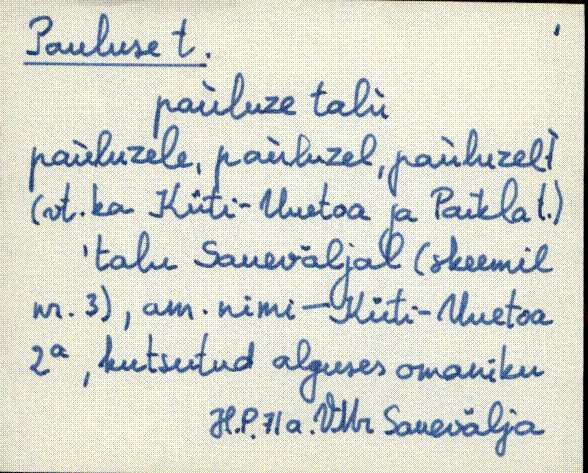 Pauluse t.
paùluze talù
paùluzele, paùluzel, paùluzelt
(vt. ka Küti-Uuetoa ja Paikla t.)
'talu Saueväljal (skeemil
nr. 3), am. nimi – Küti-Uuetoa
2ª, kutsutud alguses omaniku
H.P. 71a. VMr Sauevälja